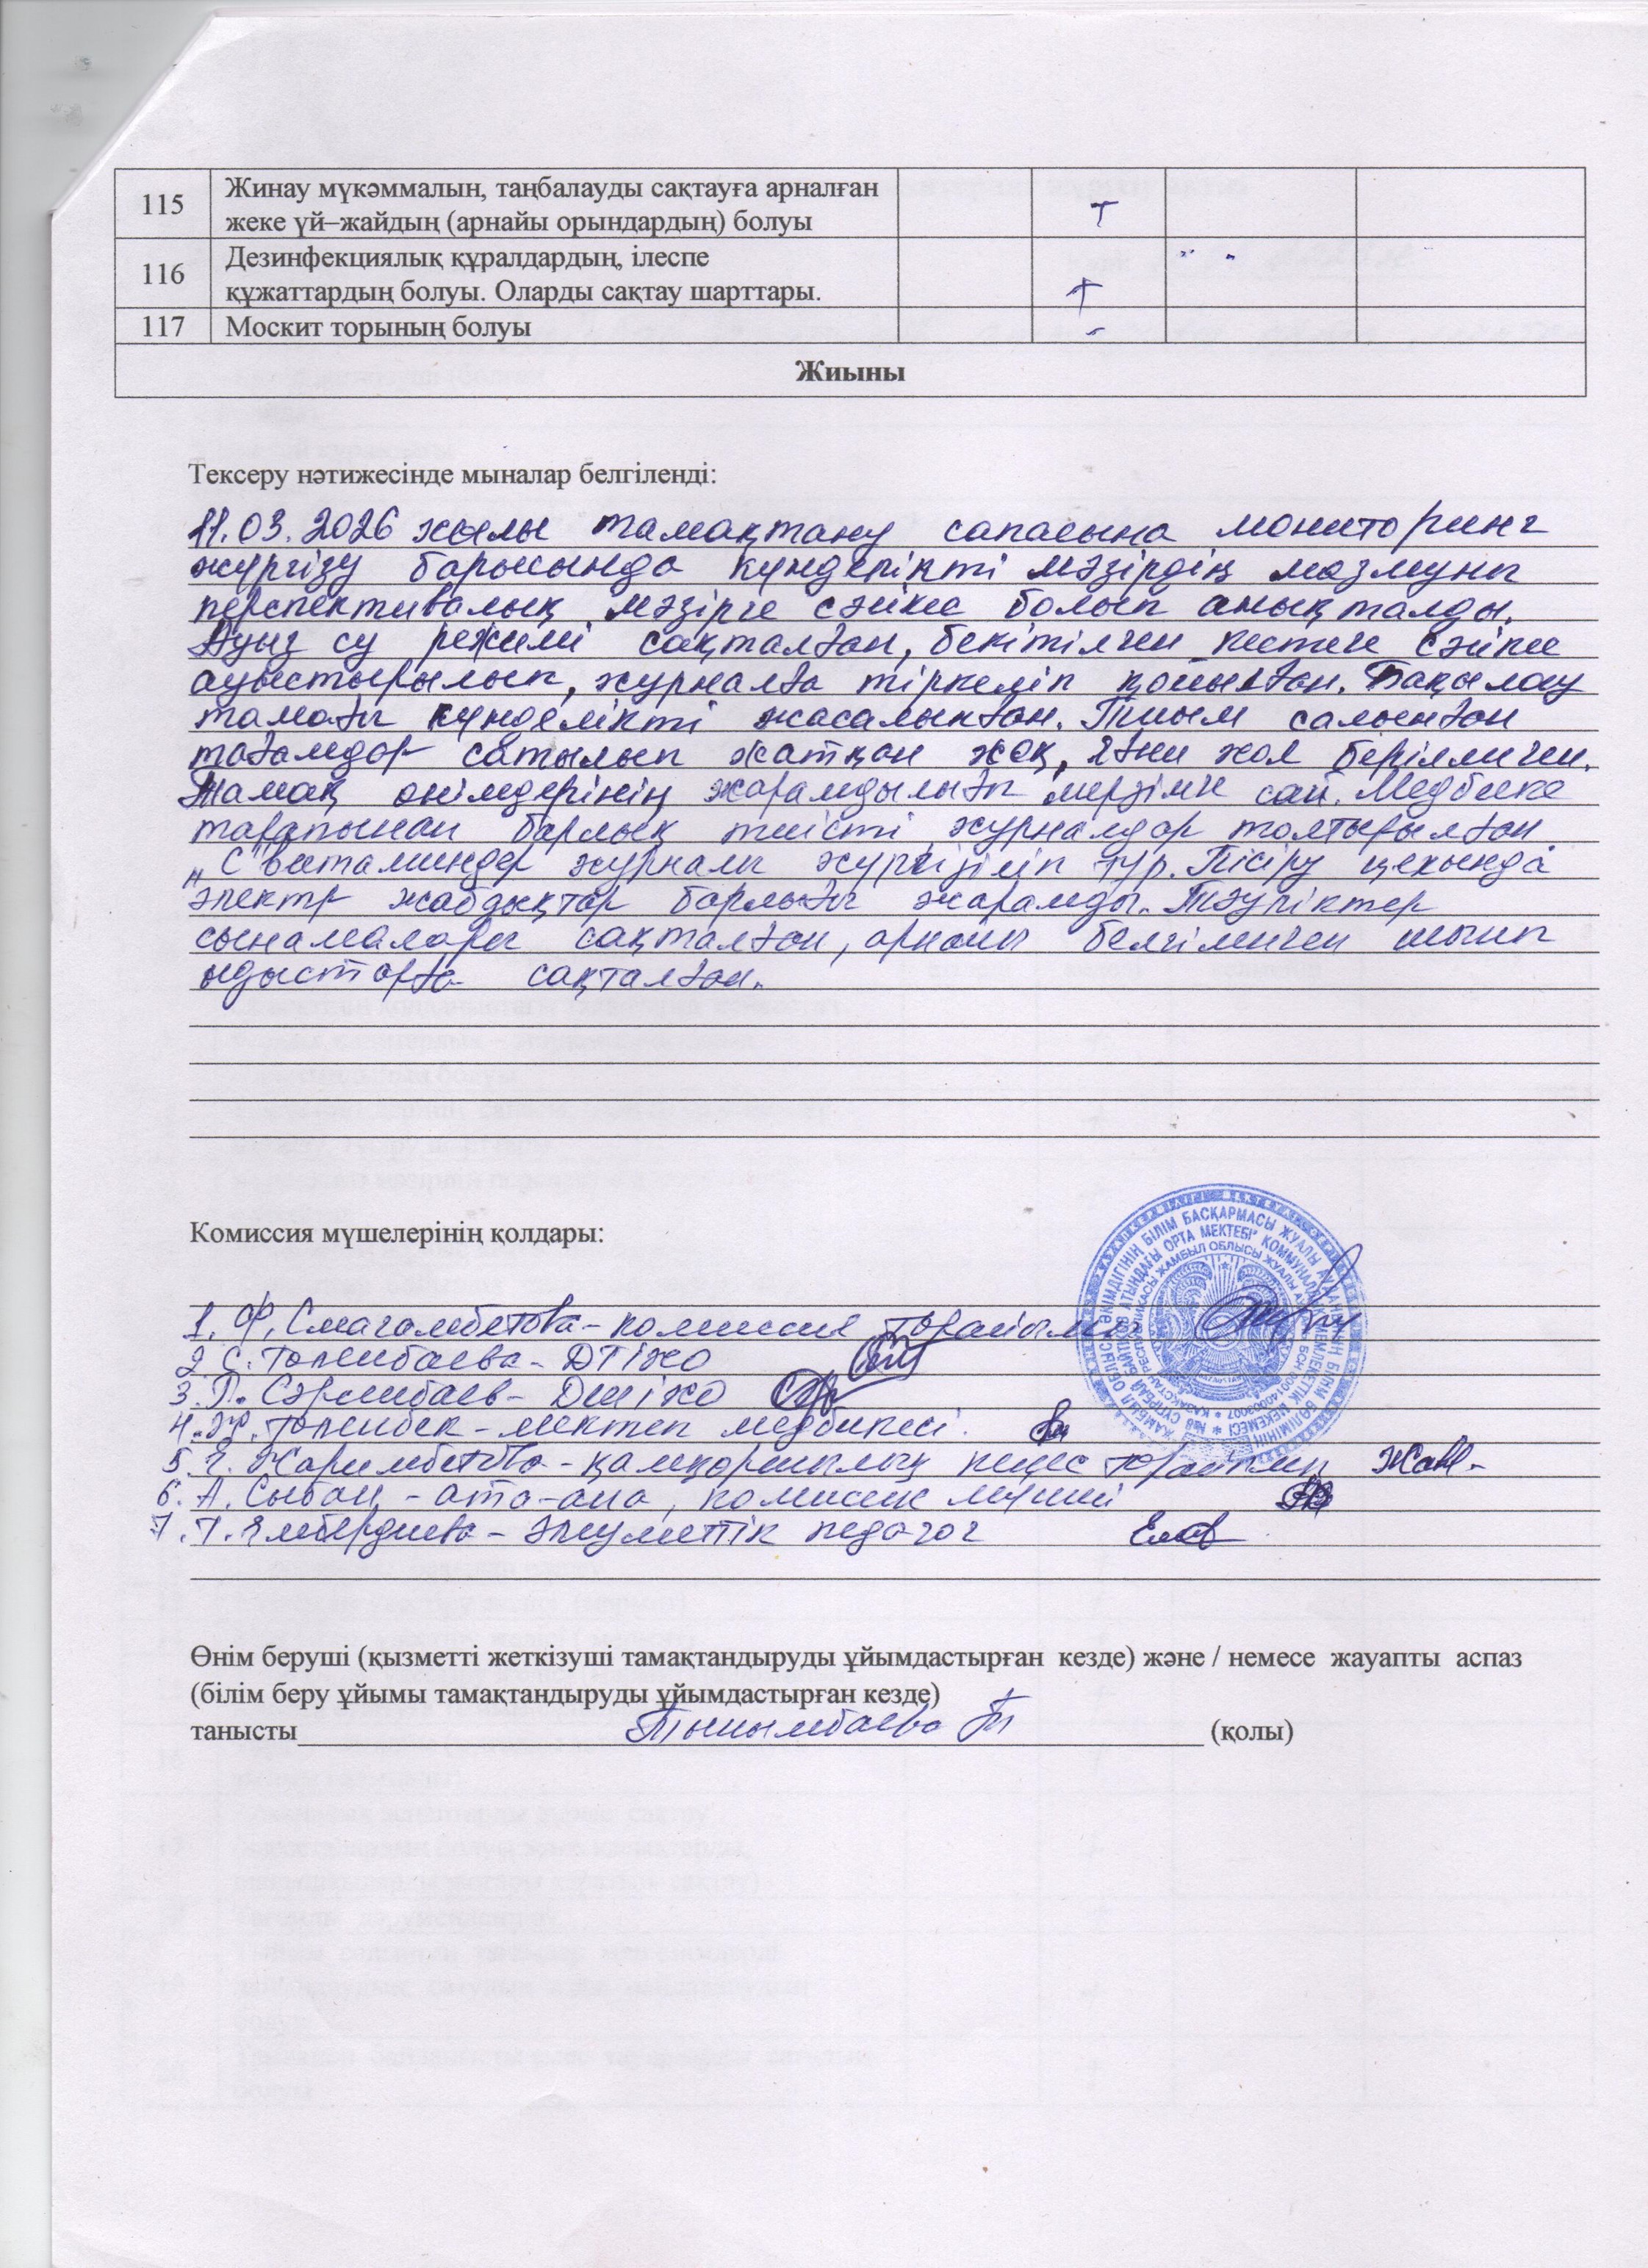 115 Жинау мүкәммалын, таңбалауды сақтауға арналған
жеке үй–жайдың (арнайы орындардың) болуы +
116 Дезинфекциялық құралдардың, ілеспе
құжаттардың болуы. Оларды сақтау шарттары. +
117 Москит торының болуы -
Жиыны
Тексеру нәтижесінде мыналар белгіленді:
11.03.2026 жылы тамақтану сапасына мониторинг
жүргізу барысында күнделікті мәзірдің мазмұны
перспективалық мәзірге сәйкес болып анықталды.
Ауыз су режимі сақталған, бекітілген кестеге сәйкес
ауыстырылып, журналға тіркеліп қойылған. Бақылау
тамағы күнделікті жасалынған. Тиым салынған
тағамдар сатылып жатқан жоқ, яғни жол берілмеген.
Тамақ өнімдерінің жарамдылығы мерзіміне сай. Медбике
тарапынан барлық тиісті журналдар толтырылған
„С" витаминдер журналы жүргізіліп тұр. Пісіру цехында
электр жабдықтар барлығы жарамды. Тәуліктер
сынамалары сақталған, арнайы белгіленген шыны
ыдыстарға сақталған.
Комиссия мүшелерінің қолдары:
1. Ф. Смагамбетова - комиссия төрайымы
2. С. Төленбаева - ДТІЖО
3. П. Сәрсенбаев - ДШІЖО
4. Ж. Төленбек - мектеп медбикесі
5. Е. Жаримбетова - қамқоршылық кеңес төрайымы
6. А. Сыбан - ата-ана, комиссия мүшесі
7. Т. Елебердиева - әлеуметтік педагог
ЖАМБЫЛ ОБЛЫСЫ ӘКІМДІГІНІҢ БІЛІМ БАСҚАРМАСЫ ЖУАЛЫ АУДАНЫНЫҢ БІЛІМ БӨЛІМІНІҢ
Өнім беруші (қызметті жеткізуші тамақтандыруды ұйымдастырған кезде) және / немесе жауапты аспаз
(білім беру ұйымы тамақтандыруды ұйымдастырған кезде)
танысты Тынымбаева Т (қолы)